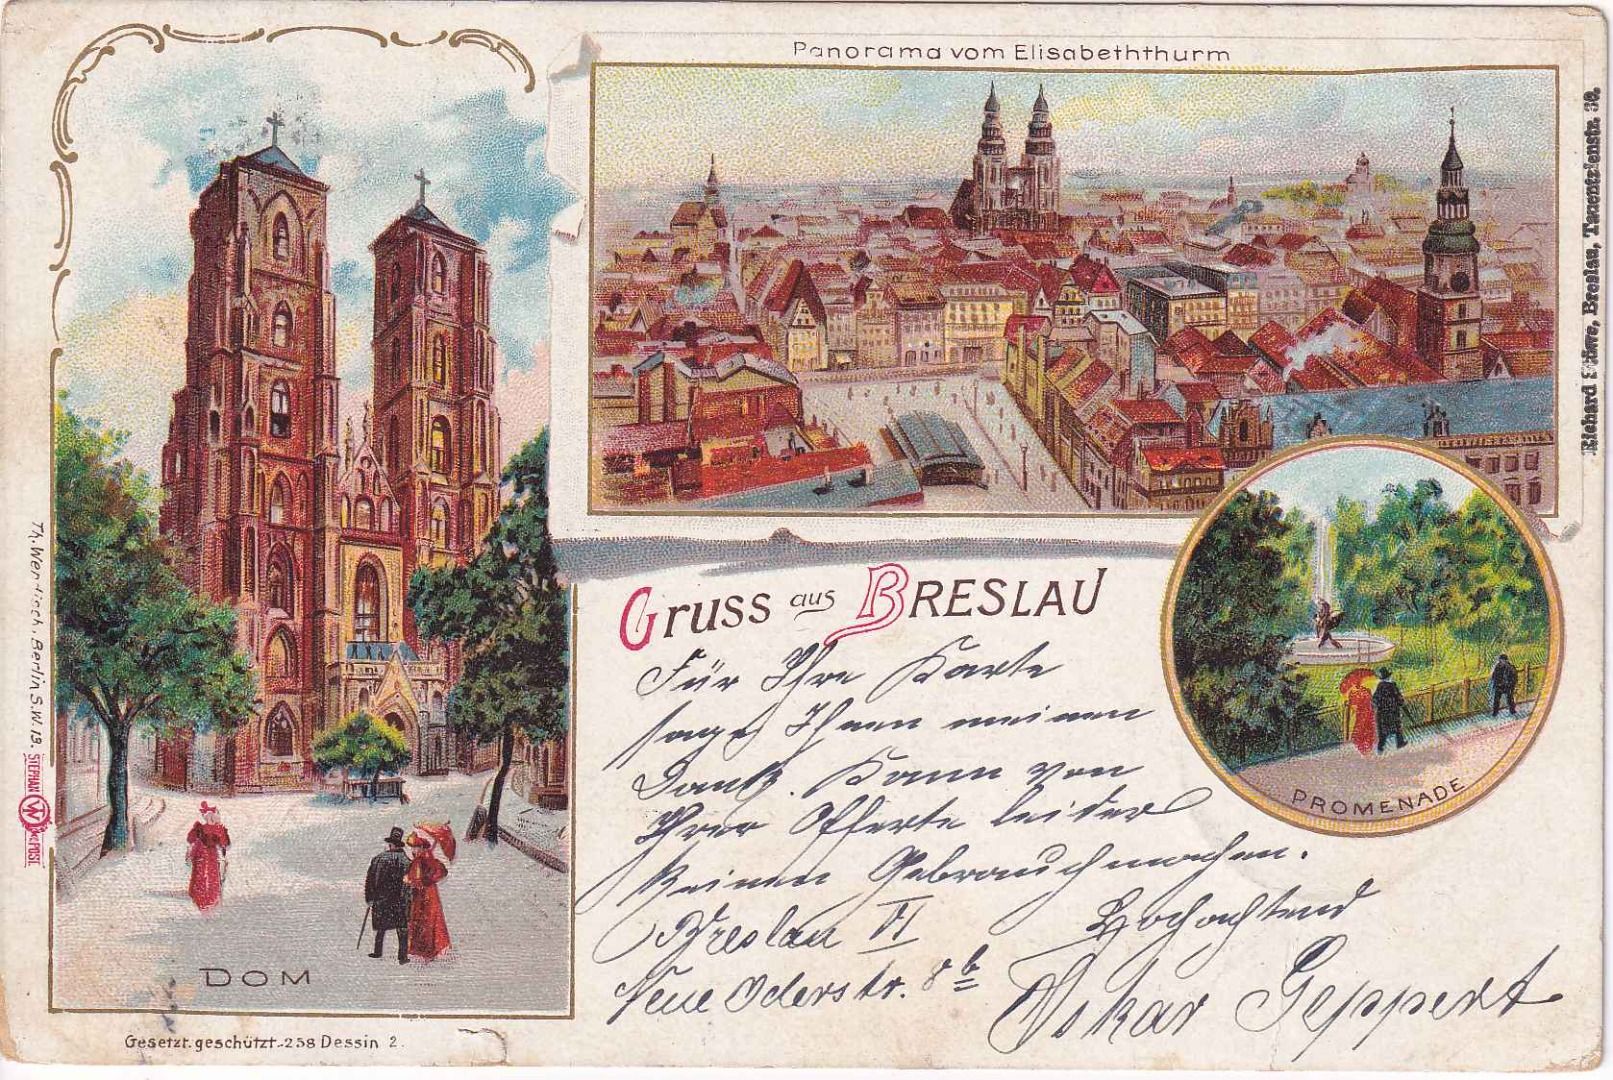 Panorama vom Elisabeththurm
Gruss aus BRESLAU
Für Ihre Karte
sage Ihnen meinen
Dank. Kann von
Ihrer Offerte leider
keinen Gebrauch machen.
Breslau VI Hochachtend
Neue Oderstr. 8b Oskar Geppert
DOM
PROMENADE
Gesetzt. geschützt.-258 Dessin 2.
Th. Wendisch, Berlin S.W.13.
STEPHAN
W
POST.
Richard Breslau, Tauentzienstr.